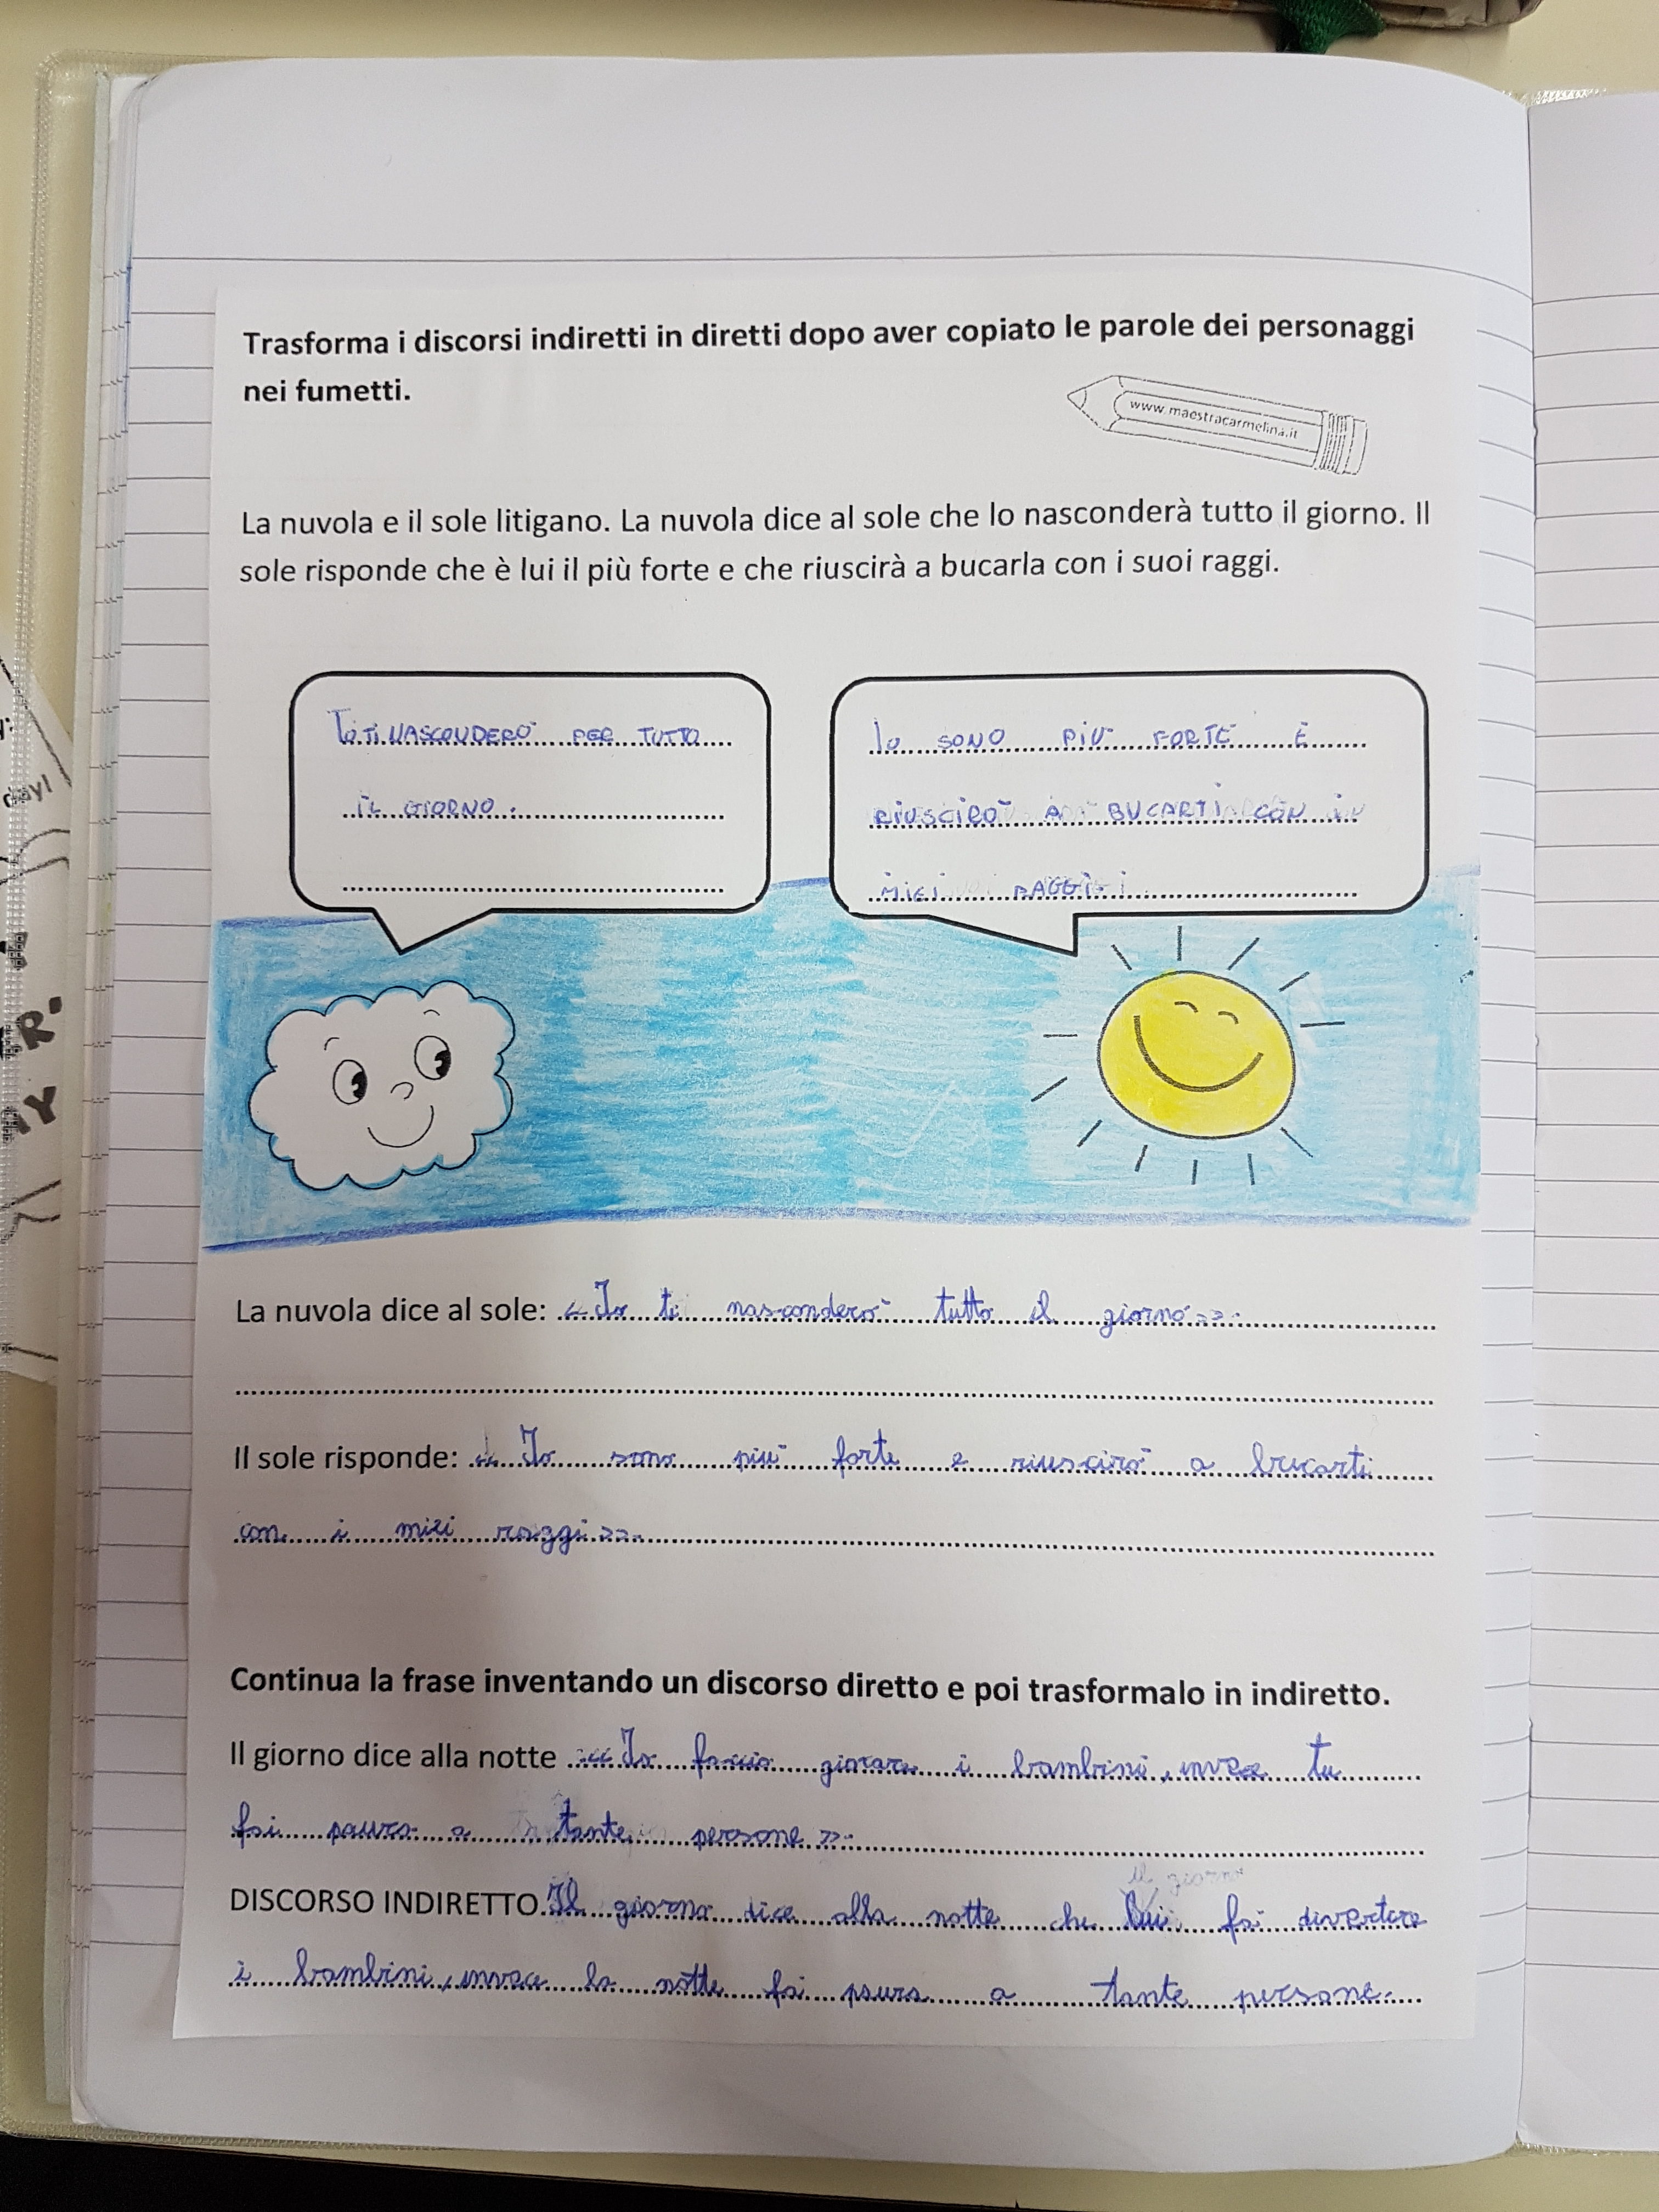 Trasforma i discorsi indiretti in diretti dopo aver copiato le parole dei personaggi
nei fumetti.
www.maestracarmelina.it
La nuvola e il sole litigano. La nuvola dice al sole che lo nasconderà tutto il giorno. Il
sole risponde che è lui il più forte e che riuscirà a bucarla con i suoi raggi.
Io TI NASCONDERÒ PER TUTTO
IL GIORNO.
Io SONO PIÙ FORTE E
RIUSCIRÒ A BUCARTI CON i
MIEI RAGGI.
La nuvola dice al sole: <<Io ti nasconderò tutto il giorno>>.
Il sole risponde: <<Io sono più forte e riuscirò a bucarti
con i miei raggi>>.
Continua la frase inventando un discorso diretto e poi trasformalo in indiretto.
Il giorno dice alla notte <<Io faccio giocare i bambini, invece tu
fai paura a tante persone>>.
il giorno
DISCORSO INDIRETTO Il giorno dice alla notte che lui fai divertire
i bambini, invece la notte fai paura a tante persone.
R'